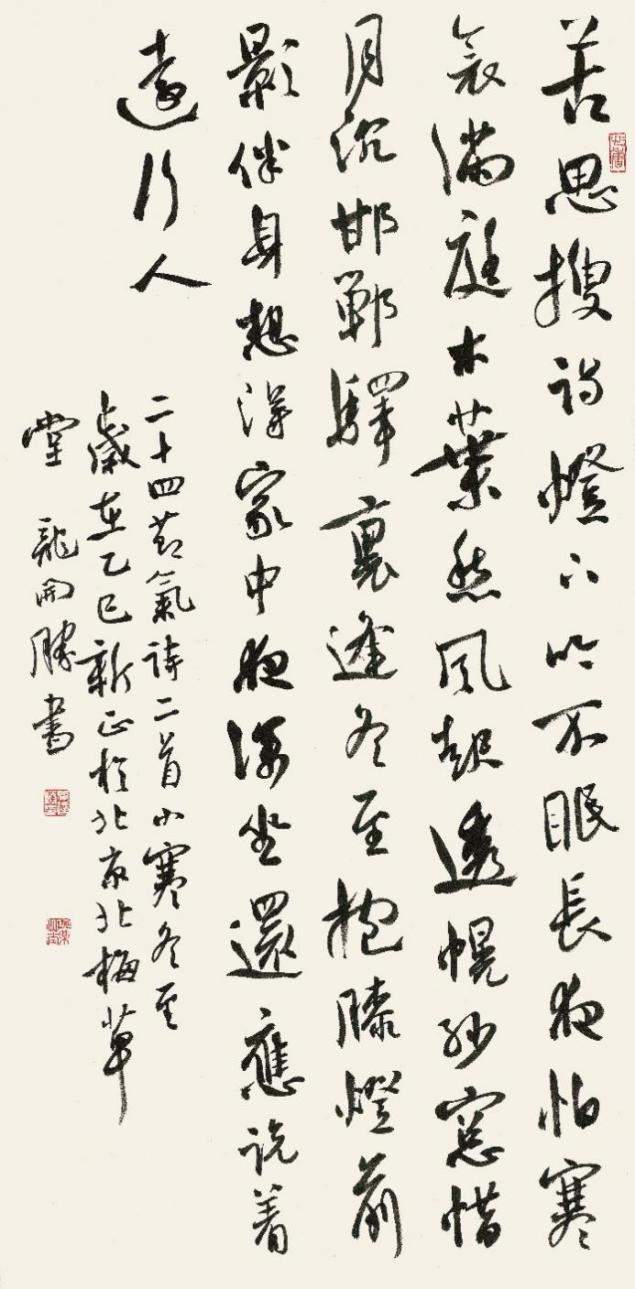 苦思搜詩燈下吟不眠長夜怕寒
衾滿庭木葉愁風起透幌紗窓惜
月沉邯鄲驛裏逢冬至抱膝燈前
影伴身想得家中夜深坐還應説着
遠行人
二十四節氣詩二首小寒冬至
歲在乙巳新正於北京北梅草
堂 龍開勝書